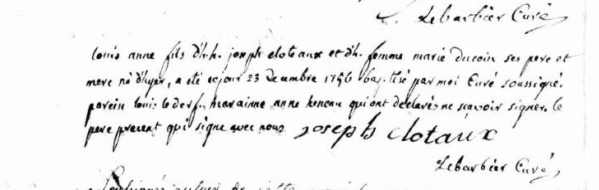 Lebarbier Curé
louis anne fils d'h.h. joseph cloteaux et d'h. femme marie ducoin ses pere et
mere né d'hyer, a été ce jour 23 decembre 1756 baptisé par moi Curé soussigné.
parein louis le maraine anne qui ont declarés ne sçavoir signer le
pere present qui signe avec nous joseph clotaux
Lebarbier Curé